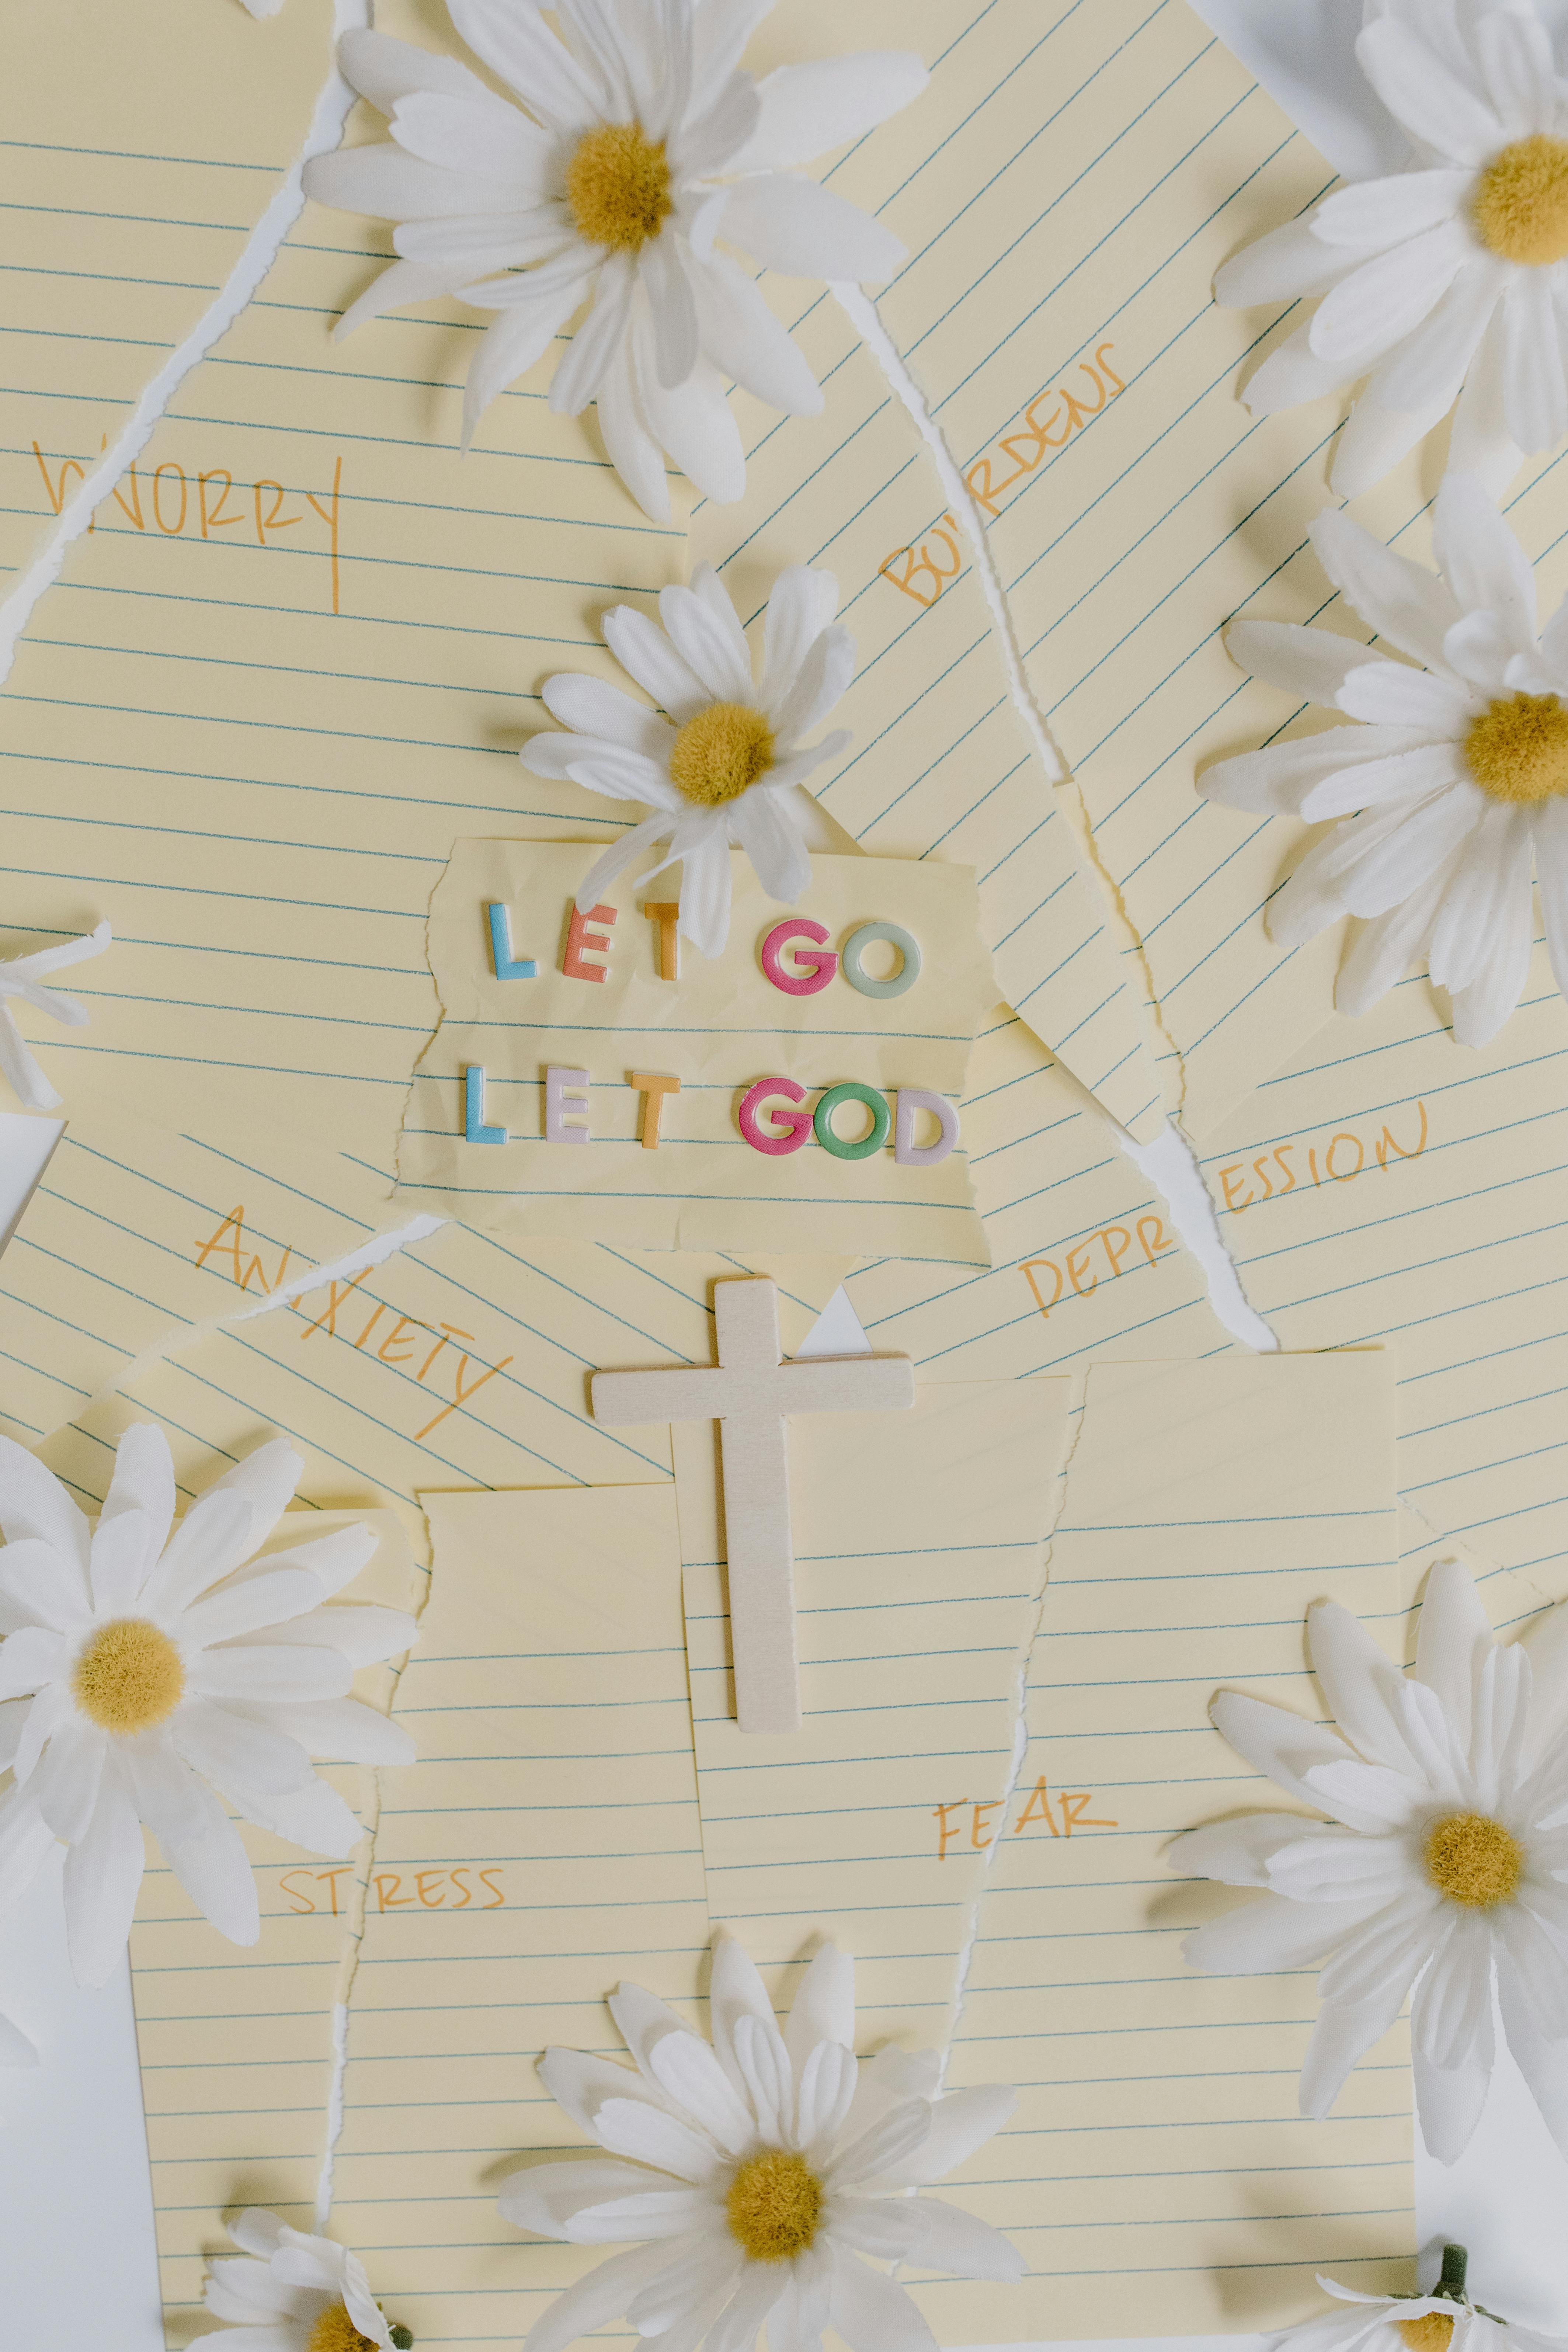 WORRY
BURDENS
LET GO
LET GOD
ANXIETY
DEPRESSION
STRESS
FEAR